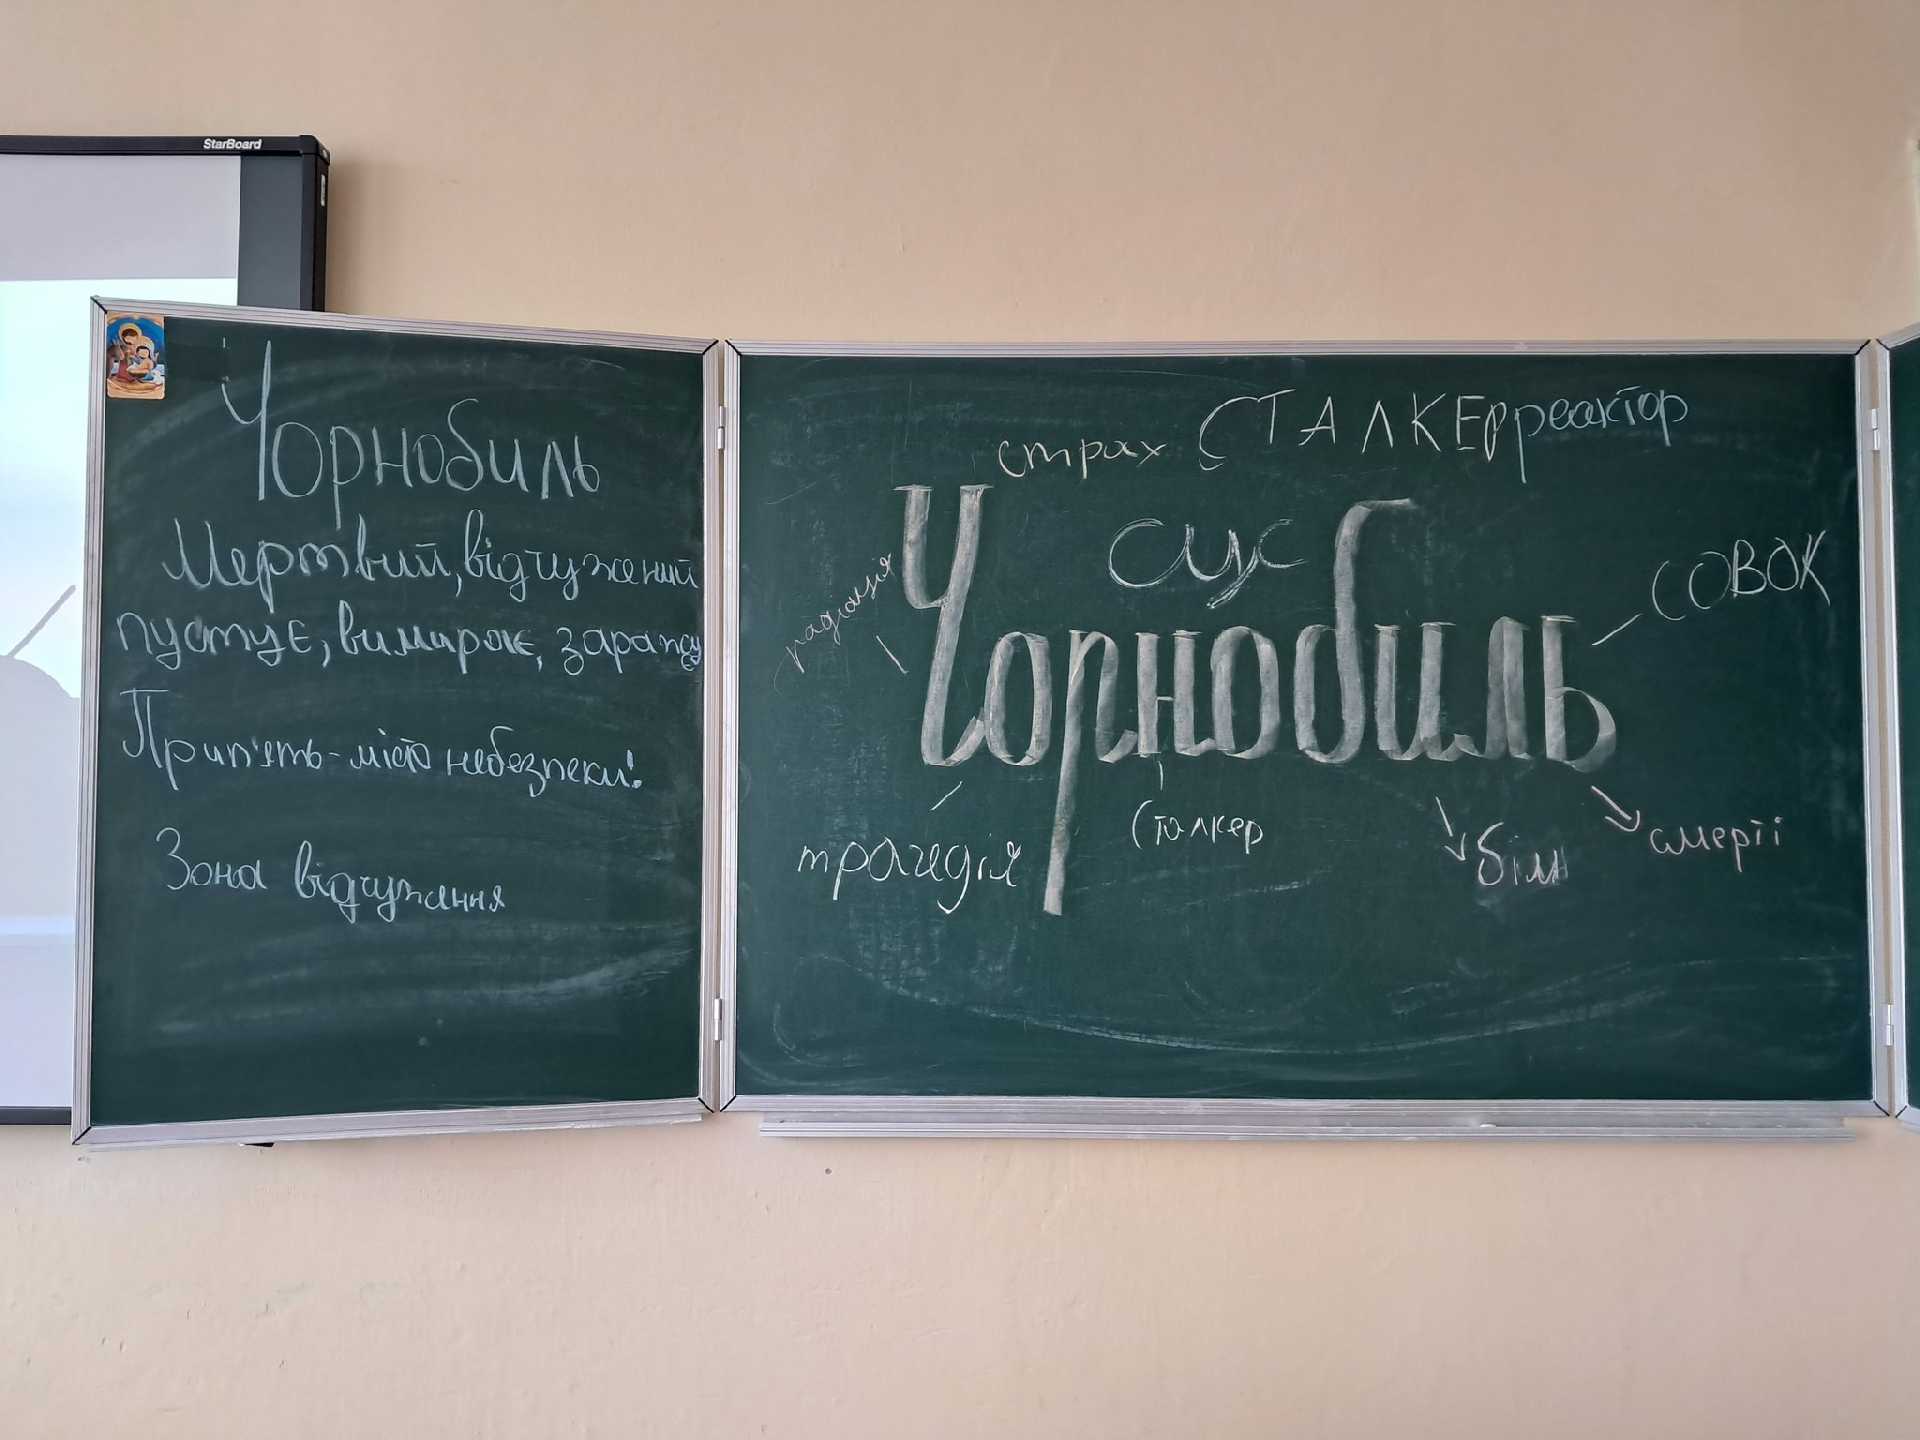 StarBoard
Чорнобиль
Мертвий, відчужений
пустує, вимирає, заражує
Прип'ять - місто небезпеки!
Зона відчуження
страх СТАЛКЕР реактор
сус
радіація
Чорнобиль
СОВОК
трагедія
Сталкер
біль
смерті